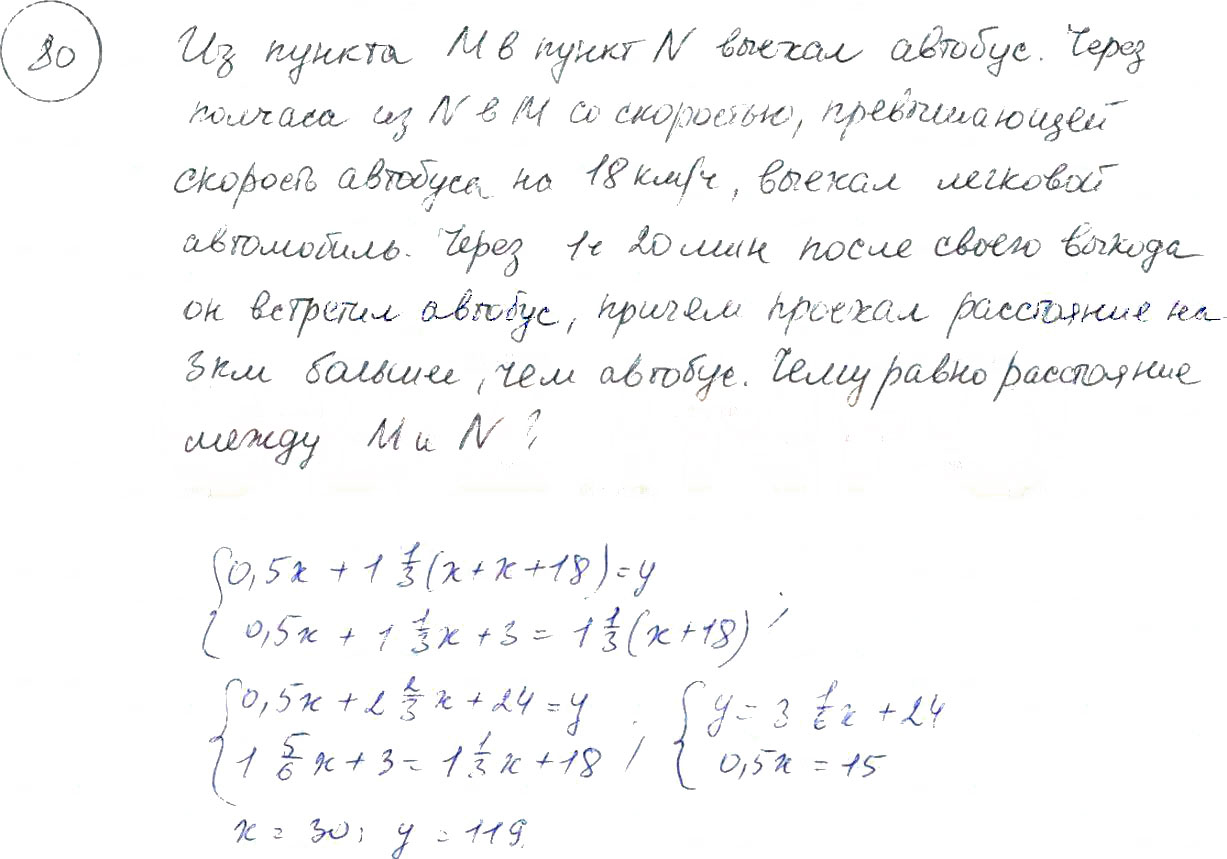 80
Из пункта М в пункт N выехал автобус. Через
полчаса из N в М со скоростью, превышающей
скорость автобуса на 18 км/ч, выехал легковой
автомобиль. Через 1ч 20 мин после своего выхода
он встретил автобус, причем проехал расстояние на
3 км больше, чем автобус. Чему равно расстояние
между М и N?
{0,5x + 1 1/3 (x+x+18) = y
{0,5x + 1 1/3 x + 3 = 1 1/3 (x+18) ;
{0,5x + 2 2/3 x + 24 = y ; {y = 3 1/6 x + 24
{1 5/6 x + 3 = 1 1/3 x + 18 ; {0,5x = 15
x = 30; y = 119.